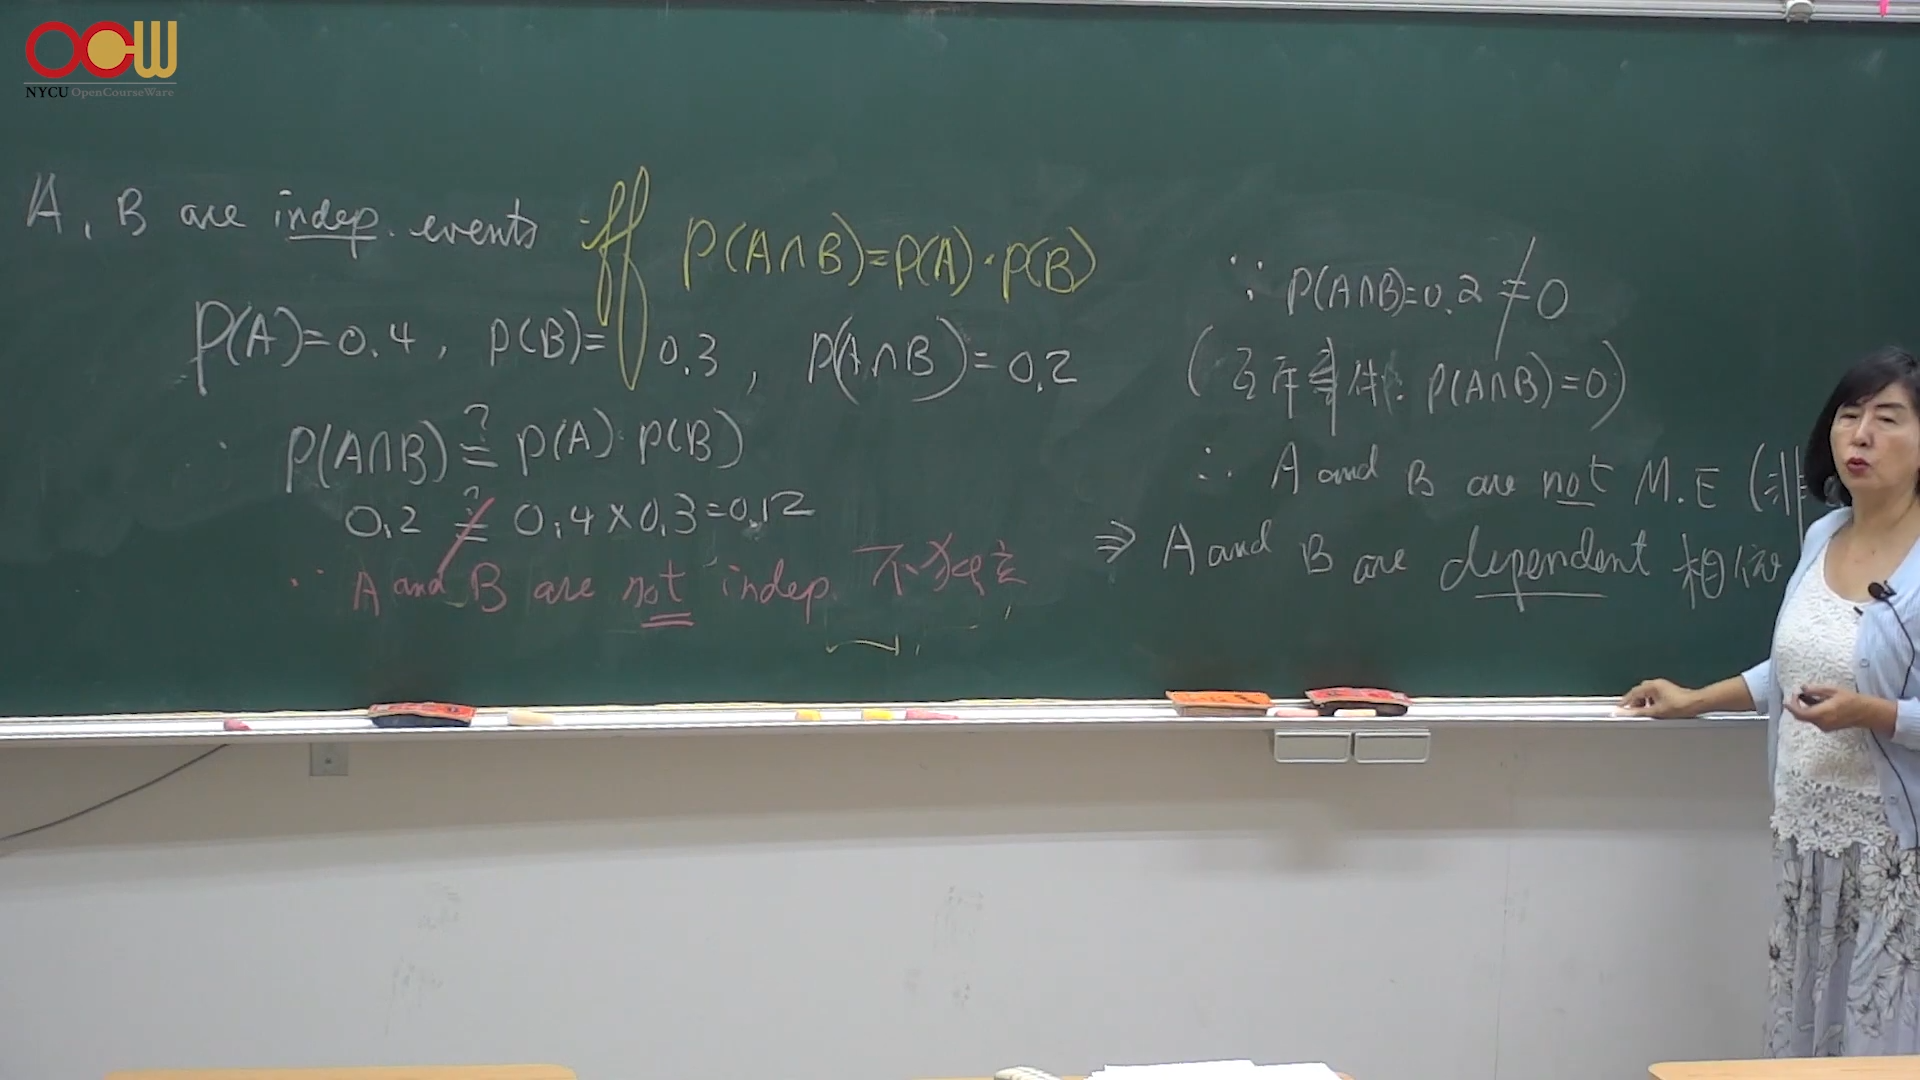 OCW
NYCU OpenCourseWare
A, B are indep. events iff P(A∩B)=P(A)·P(B)
P(A)=0.4, P(B)=0.3, P(A∩B)=0.2
P(A∩B) ≟ P(A)·P(B)
0.2 ≠ 0.4×0.3=0.12
∴ A and B are not indep. 不獨立
∵ P(A∩B)=0.2≠0
(互斥事件: P(A∩B)=0)
∴ A and B are not M.E (非
⇒ A and B are dependent 相依